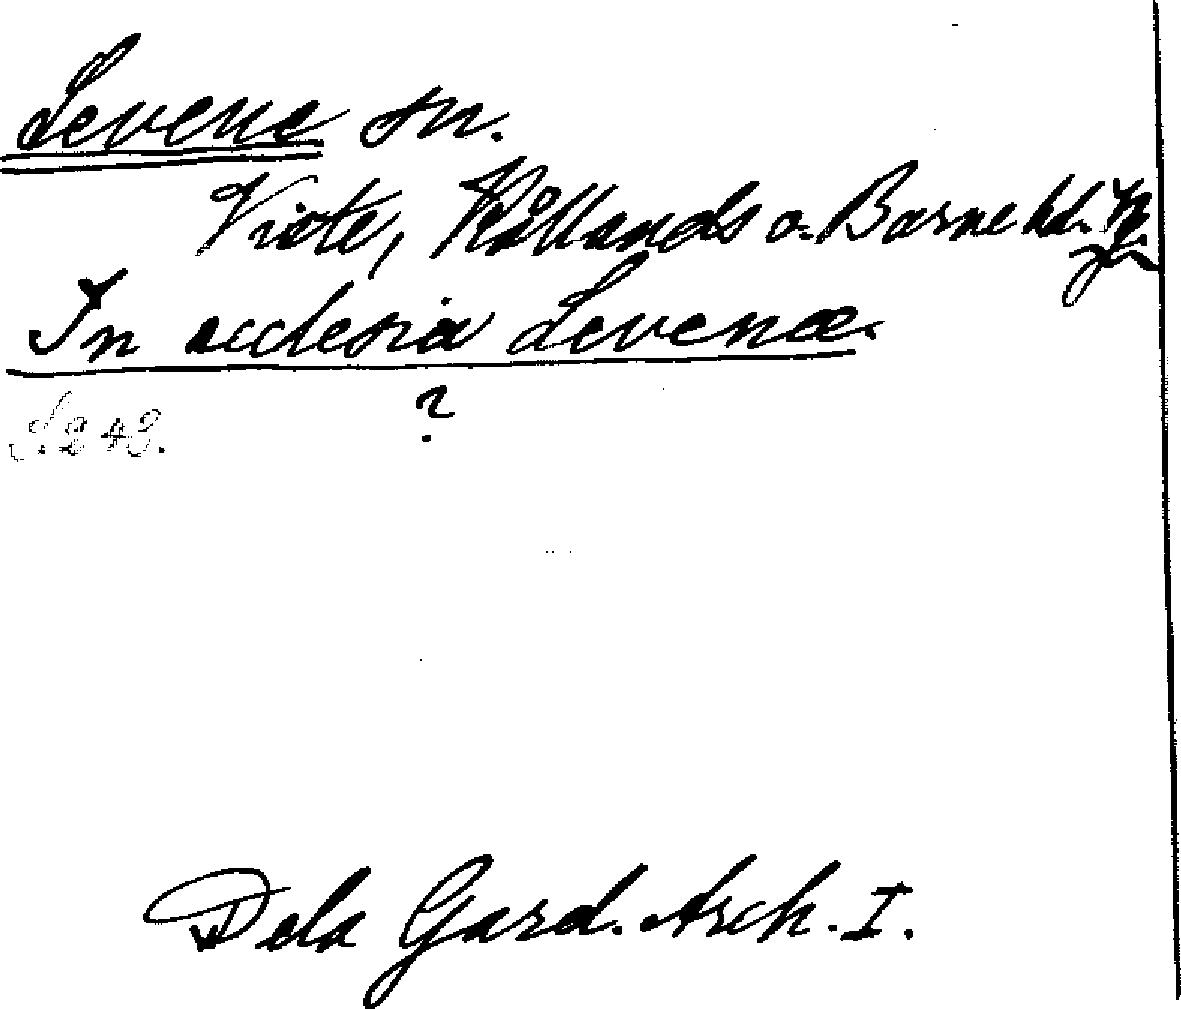 Levene sn.
Viste, Kållands o. Barne hd.
In ecclesia Levenæ.
?
S. 243.
Dela Gard. Arch. I.